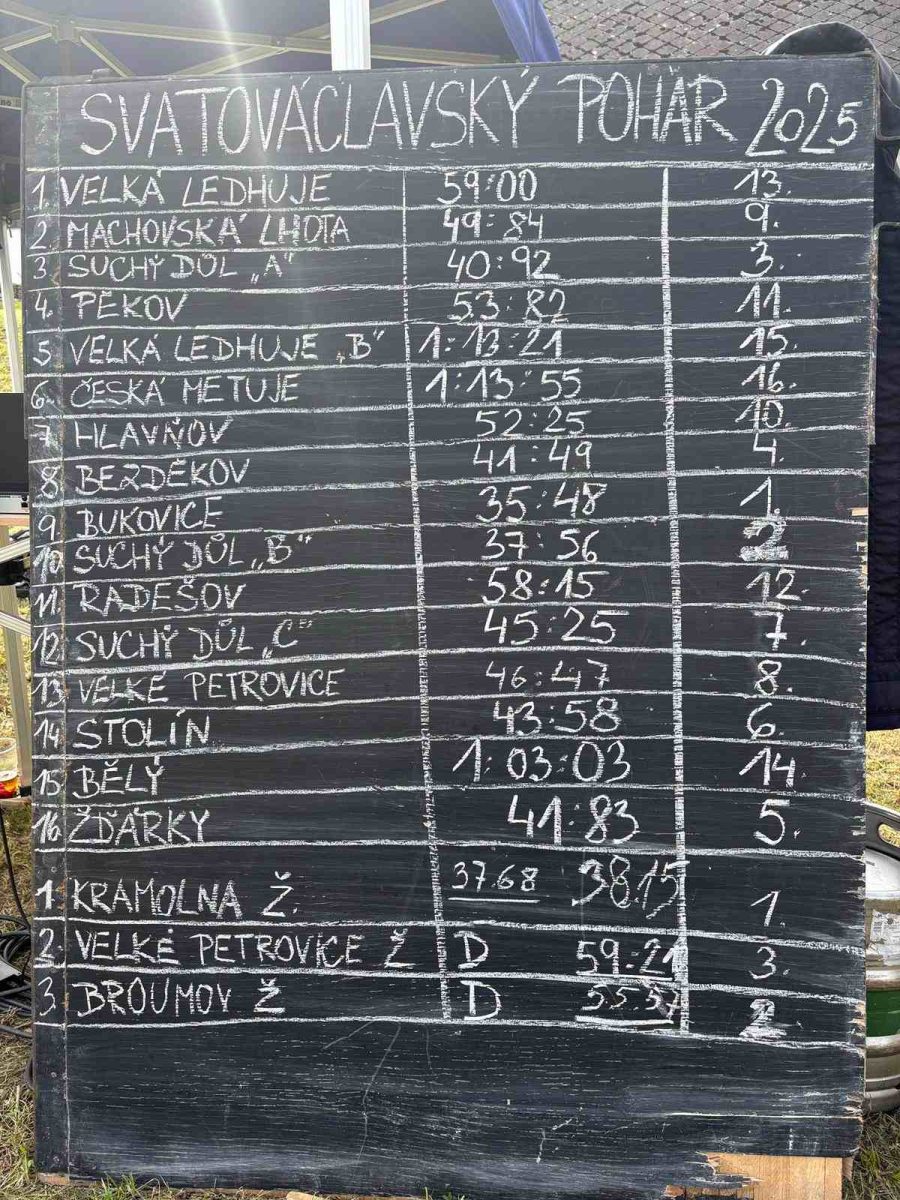 SVATOVÁCLAVSKÝ POHÁR 2025
1. VELKÁ LEDHUJE 59:00 13.
2 MACHOVSKÁ LHOTA 49:84 9.
3. SUCHÝ DŮL „A" 40:92 3.
4. PĚKOV 53:82 11.
5 VELKÁ LEDHUJE „B" 1:13:21 15.
6. ČESKÁ METUJE 1:13:55 16.
7. HLAVŇOV 52:25 10.
8 BEZDĚKOV 41:49 4.
9 BUKOVICE 35:48 1.
10 SUCHÝ DŮL „B" 37:56 2
11. RADEŠOV 58:15 12.
12. SUCHÝ DŮL „C" 45:25 7.
13. VELKÉ PETROVICE 46:47 8.
14 STOLÍN 43:58 6.
15 BĚLÝ 1:03:03 14.
16. ŽĎÁRKY 41:83 5.
1. KRAMOLNA Ž. 37.68 38.15 1.
2. VELKÉ PETROVICE Ž D 59:21 3.
3. BROUMOV Ž D 55.57 2